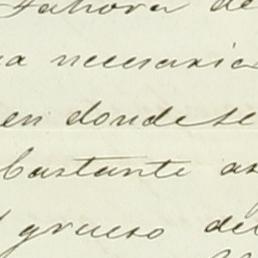 ahora de
a necesaria
en donde se
bastante as
grueso del